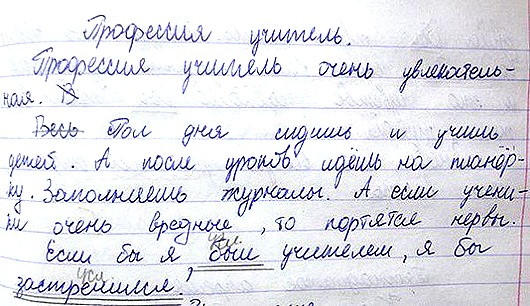 Профессия учитель.
Профессия учитель очень увлекатель-
ная. В
Весь Пол дня сидишь и учишь
детей. А после уроков идёшь на планёр-
ку. Заполняешь журналы. А если учени-
ки очень вредные, то портятся нервы.
усл.
Если бы я был учителем, я бы
усл
застрелился.